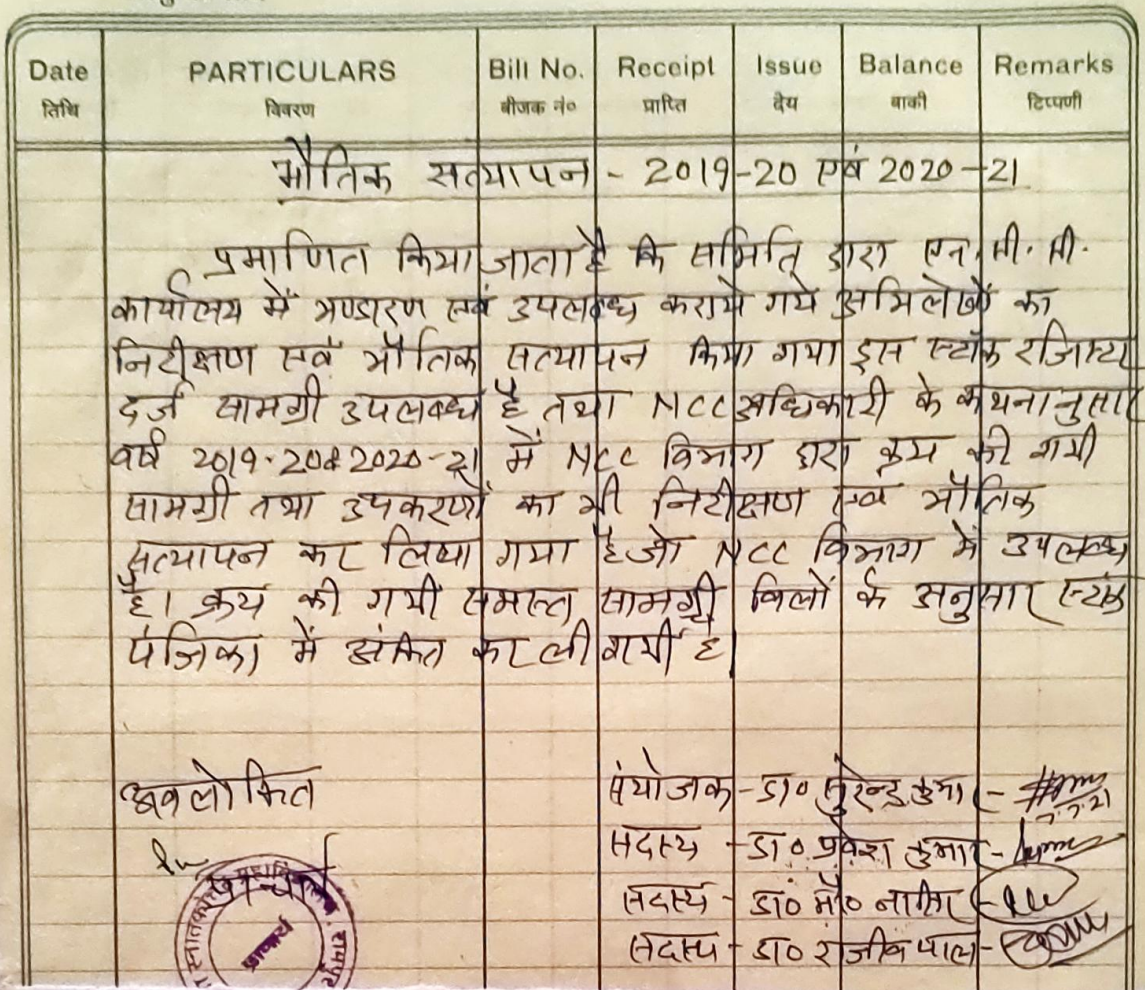 Date PARTICULARS Bill No. Receipt Issue Balance Remarks
तिथि विवरण बीजक नं० प्राप्ति देय बाकी टिप्पणी
भौतिक सत्यापन - 2019-20 एवं 2020-21
प्रमाणित किया जाता है कि समिति द्वारा एन.सी.सी.
कार्यालय में भण्डारण एवं उपलब्ध कराये गये अभिलेखों का
निरीक्षण एवं भौतिक सत्यापन किया गया इस स्टॉक रजिस्टर
दर्ज सामग्री उपलब्ध है तथा NCC अधिकारी के कथनानुसार
वर्ष 2019-20 & 2020-21 में NCC विभाग द्वारा क्रय की गयी
सामग्री तथा उपकरणों का भी निरीक्षण एवं भौतिक
सत्यापन कर लिया गया है जो NCC विभाग में उपलब्ध
है। क्रय की गयी समस्त सामग्री बिलों के अनुसार स्टॉक
पंजिका में अंकित कर ली गयी है।
अवलोकित
संयोजक - डा० सुरेन्द्र कुमार -
7.7.21
सदस्य - डा० प्रवेश कुमार -
प्राचार्य
सदस्य - डा० मौ० नासिर -
सदस्य - डा० राजीव पाल -
प्राचार्य